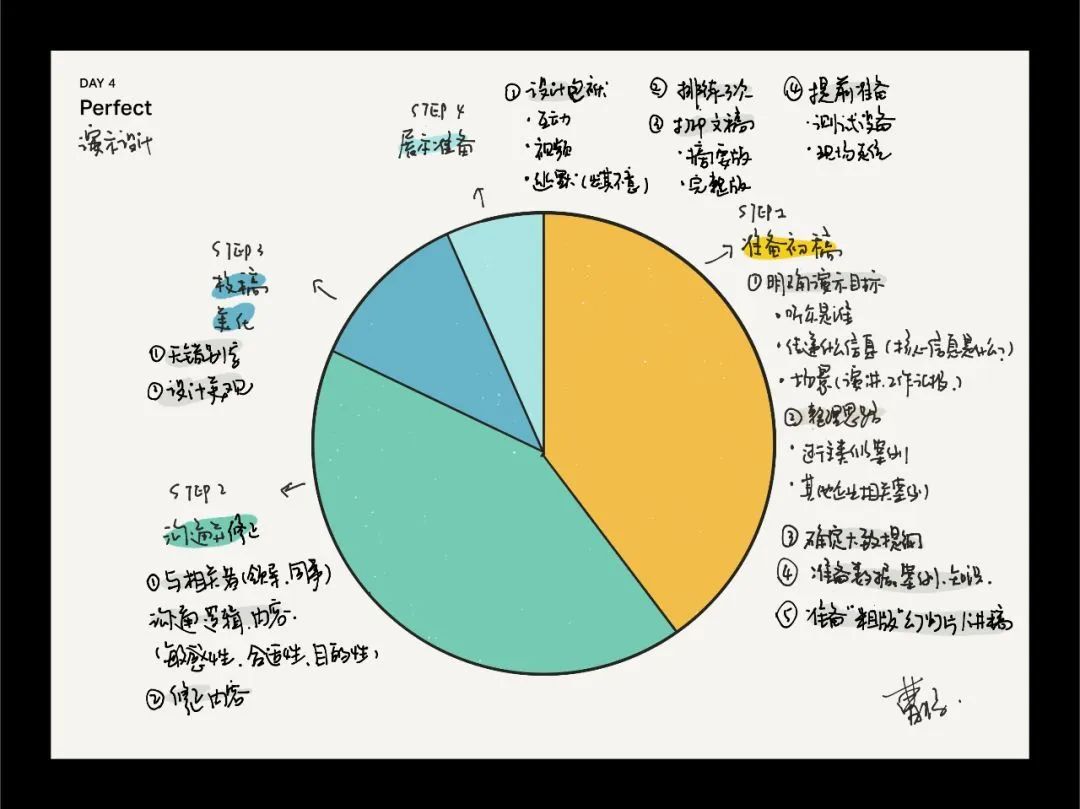 DAY 4
Perfect
演示设计
STEP 1
准备初稿
① 明确演示目标
· 听众是谁
· 传递什么信息(核心信息是什么?)
· 场景(演讲.工作汇报.)
② 整理思路
· 进行类似案例
· 其他企业相关案例
③ 确定大致提纲
④ 准备数据.案例.知识.
⑤ 准备"粗版"幻灯片/讲稿
STEP 2
沟通并修正
① 与相关者(领导.同事)
沟通逻辑.内容.
(敏感性.合适性.目的性)
② 修正内容
STEP 3
校稿
美化
① 无错别字
② 设计美观
STEP 4
展示准备
① 设计包袱
· 互动
· 视频
· 幽默(出其不意)
② 排练3次
③ 打印文稿
· 摘要版
· 完整版
④ 提前准备
· 测试设备
· 现场